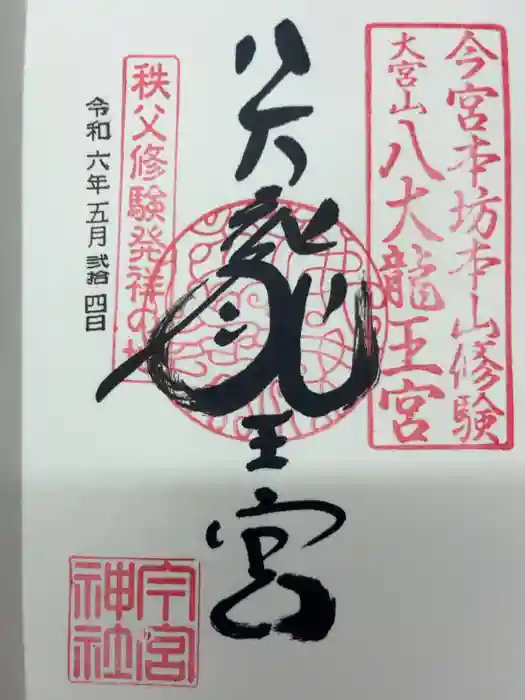 今宮本坊本山修験
大宮山八大龍王宮
八大龍王宮
秩父修験発祥の地
令和六年五月弐拾四日
今宮神社